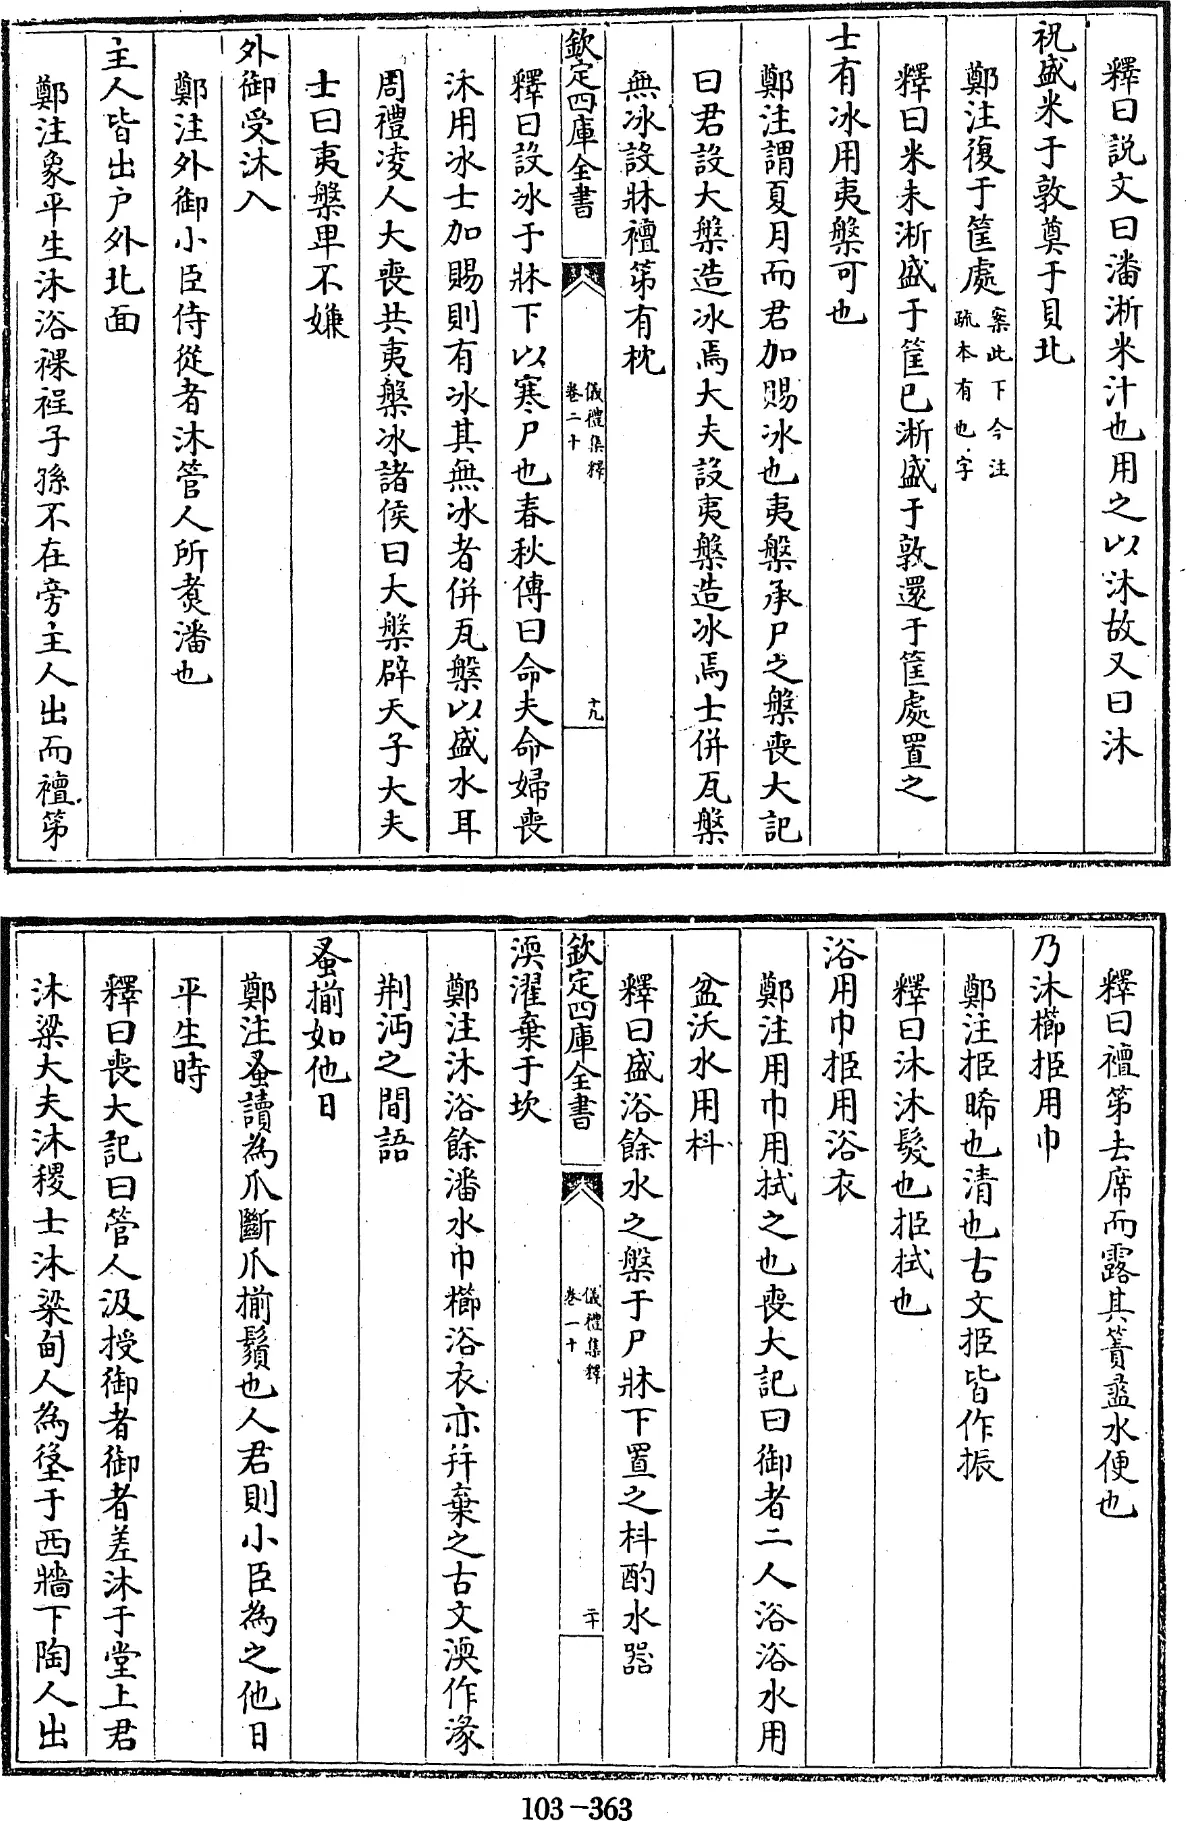 釋曰説文曰潘淅米汁也用之以沐故又曰沐
祝盛米于敦奠于貝北
鄭注復于筐處案此下今注疏本有也字
釋曰米未淅盛于筐已淅盛于敦還于筐處置之
士有冰用夷槃可也
鄭注謂夏月而君加賜冰也夷槃承尸之槃喪大記
曰君設大槃造冰焉大夫設夷槃造冰焉士併瓦槃
無冰設牀襢笫有枕
欽定四庫全書
儀禮集釋
卷二十
十九
釋曰設冰于牀下以寒尸也春秋傳曰命夫命婦喪
沐用冰士加賜則有冰其無冰者併瓦槃以盛水耳
周禮凌人大喪共夷槃冰諸侯曰大槃辟天子大夫
士曰夷槃卑不嫌
外御受沐入
鄭注外御小臣侍從者沐管人所煮潘也
主人皆出户外北面
鄭注象平生沐浴裸裎子孫不在旁主人出而襢笫
釋曰襢笫去席而露其簀盝水便也
乃沐櫛挋用巾
鄭注挋晞也清也古文挋皆作振
釋曰沐沐髮也挋拭也
浴用巾挋用浴衣
鄭注用巾用拭之也喪大記曰御者二人浴浴水用
盆沃水用枓
釋曰盛浴餘水之槃于尸牀下置之枓酌水器
欽定四庫全書
儀禮集釋
卷二十
二十
渜濯棄于坎
鄭注沐浴餘潘水巾櫛浴衣亦并棄之古文渜作湪
荆沔之間語
蚤揃如他日
鄭注蚤讀為爪斷爪揃鬚也人君則小臣為之他日
平生時
釋曰喪大記曰管人汲授御者御者差沐于堂上君
沐粱大夫沐稷士沐粱甸人為垼于西牆下陶人出
103-363